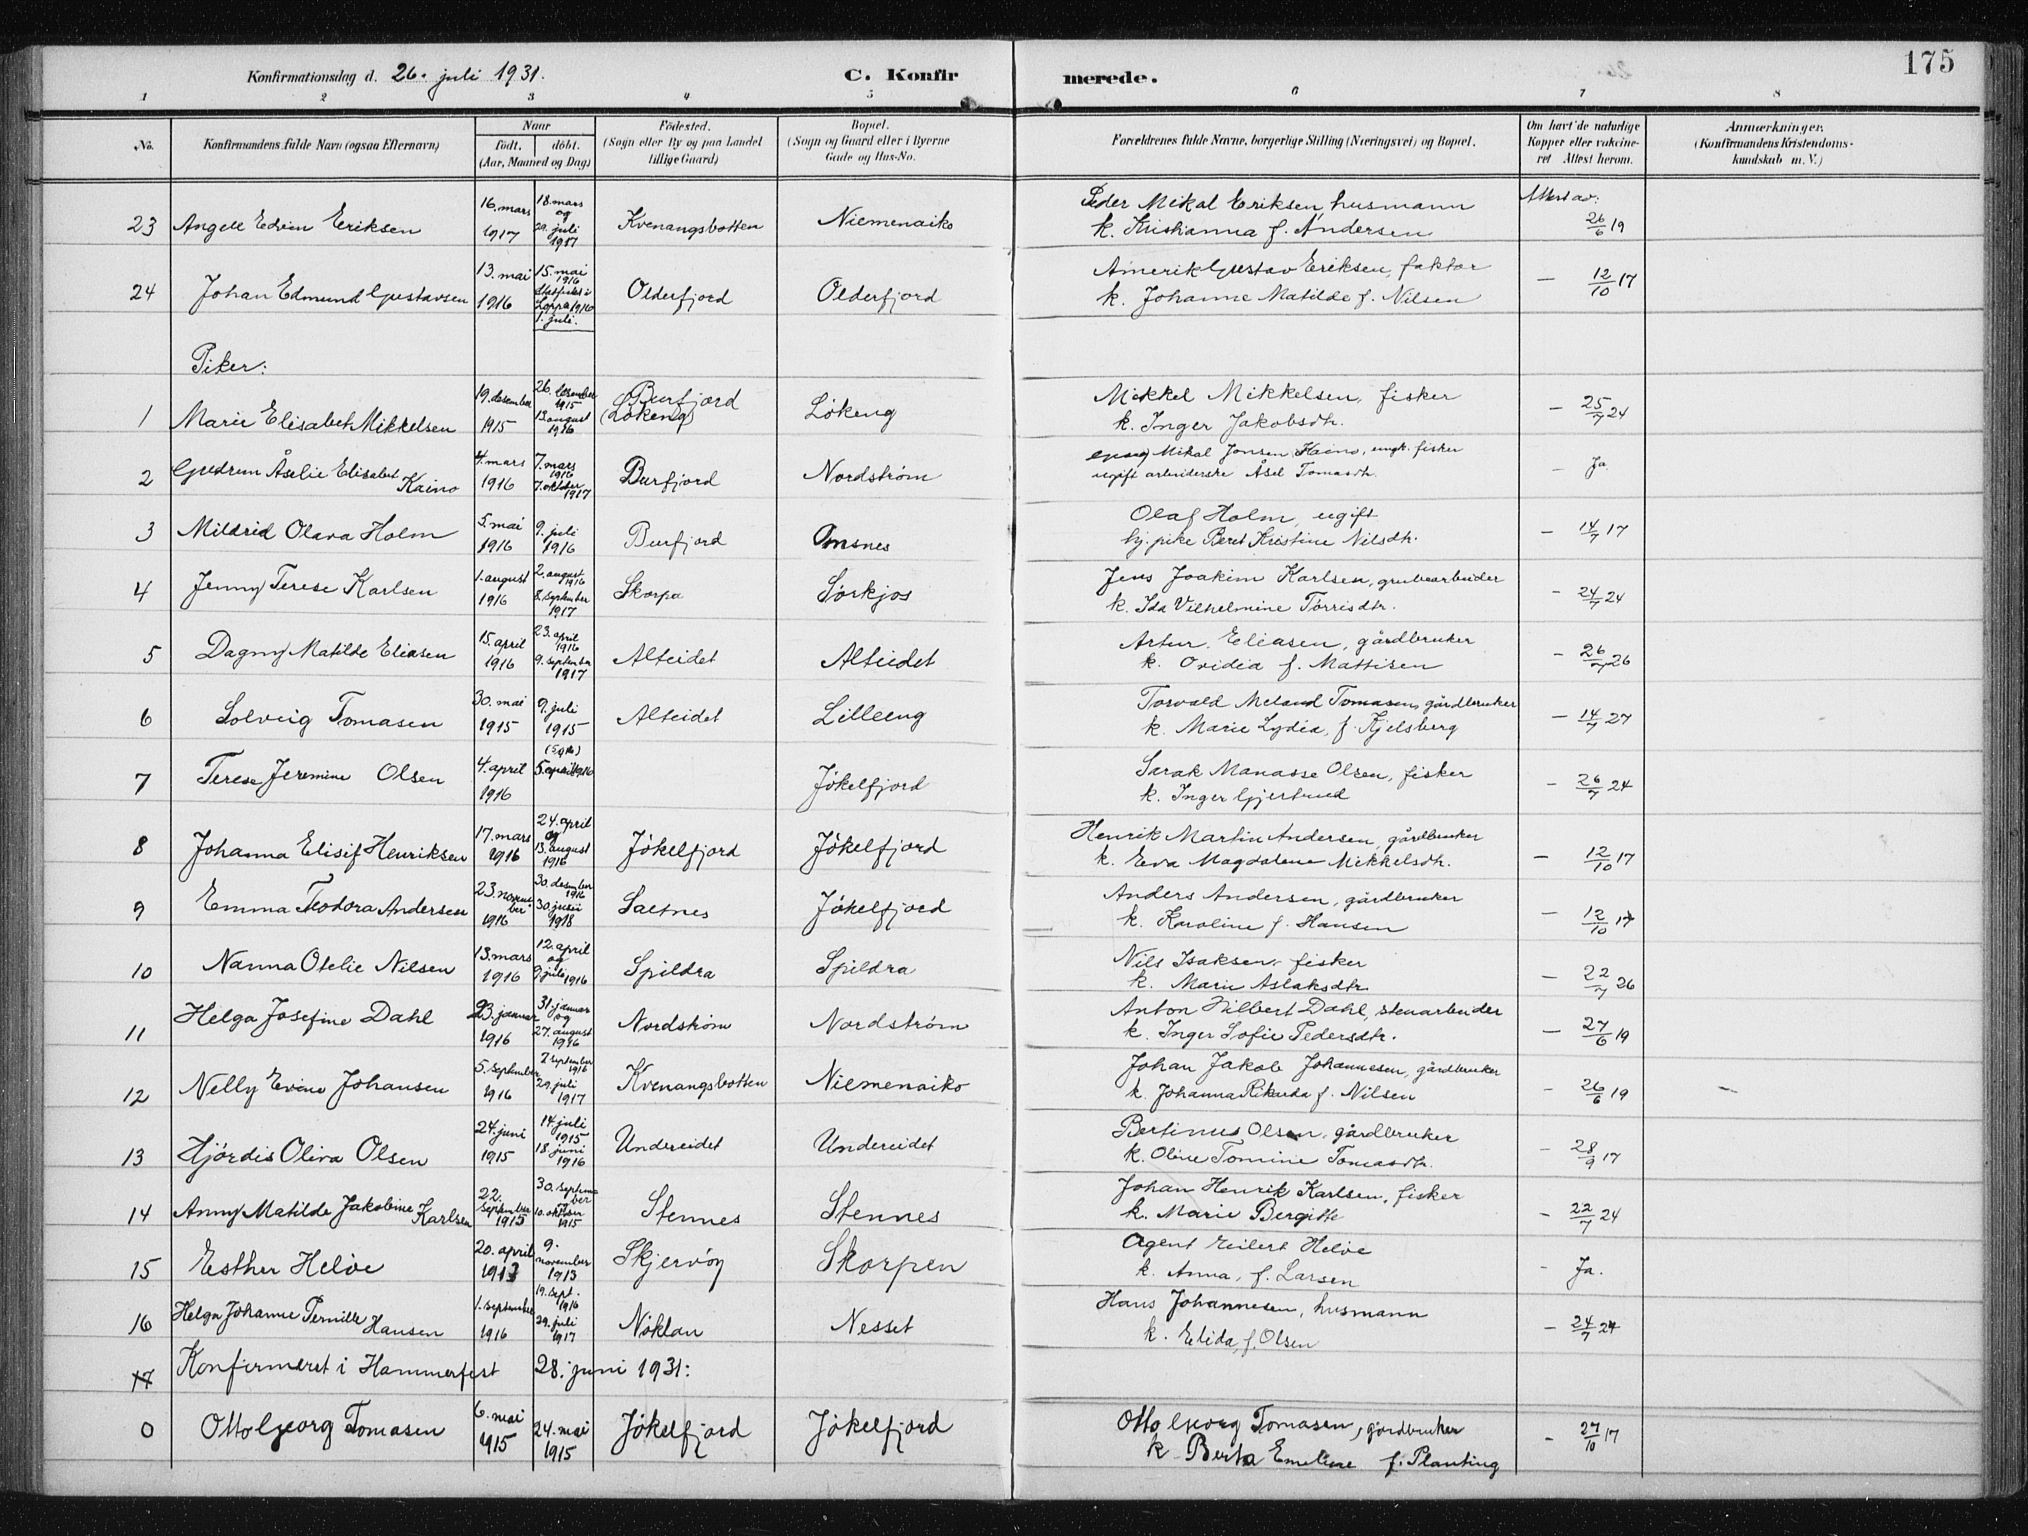 175
Konfirmationsdag d. 26. juli 1931. C. Konfirmerede.
1 2 3 4 5 6 7 8
No. Konfirmandens fulde Navn (ogsaa Efternavn) Naar født. døbt. (Aar, Maaned og Dag) Fødested. (Sogn eller By og paa Landet tillige Gaard) Bopæl. (Sogn og Gaard eller i Byerne Gade og Hus-No. Forældrenes fulde Navne, borgerlige Stilling (Næringsvei) og Bopæl. Om havt de naturlige Kopper eller vaccineret Attest herom. Anmærkninger. (Konfirmandens Kristendomskundskab m. V.)
23 Angell Edvin Eriksen 16. mars 1917 18. mars og 29. juli 1917 Kvenangsbotten Niemenaiko Peder Mikal Eriksen, husmann k. Kristianna f. Andersen Attest av: 26/6 19
24 Johan Edmund Gustavsen 13. mai 1916 15. mai 1916 Loppa 1916 1. juli. Olderfjord Olderfjord Amerik Gustav Eriksen, faktor k. Johanne Matilde f. Nilsen — 12/10 17
Piker:
1 Marie Elisabet Mikkelsen 19. desember 1915 26. desember 1915 13. august 1916 Burfjord (Løkeng) Løkeng Mikkel Mikkelsen, fisker k. Inger Jakobsdtr. — 25/7 24
2 Gudrun Åselie Elisabet Kaino 4. mars 1916 7. mars 1916 7. oktober 1917 Burfjord Nordstrøm Mikal Jonsen Kaino, ungk. fisker ugift arbeiderske Åsel Tomasdtr. — Ja
3 Mildrid Olava Holm 5. mai 1916 9. juli 1916 Burfjord Omsnes Olaf Holm, ugift hj. pike Beret Kristine Nilsdtr. — 14/7 17
4 Jenny Terese Karlsen 1. august 1916 2. august 1916 8. september 1917 Skorpa Sørkjos Jens Joakim Karlsen, grubearbeider k. Ida Vilhelmine Tørrisdtr. — 24/7 24
5 Dagny Matilde Eliasen 15. april 1916 23. april 1916 9. september 1917 Alteidet Alteidet Artur Eliasen, gårdbruker k. Ovidia f. Mattisen — 26/7 26
6 Solveig Tomasen 30. mai 1915 9. juli 1915 Alteidet Lilleeng Torvald Meland Tomasen, gårdbruker k. Marie Lydia, f. Kjelsberg — 14/7 27
7 Terese Jeremine Olsen 4. april 1916 5. april 1916 Jøkelfjord Sarak Manasse Olsen, fisker k. Inger Gjertrud — 26/7 24
8 Johanna Elisif Henriksen 17. mars 1916 24. april og 13. august 1916 Jøkelfjord Jøkelfjord Henrik Martin Andersen, gårdbruker k. Eva Magdalene Mikkelsdtr. — 12/10 17
9 Emma Teodora Andersen 23. november 1916 30. desember 1916 30. juni 1918 Saltnes Jøkelfjord Anders Andersen, gårdbruker k. Karoline f. Hansen — 12/10 17
10 Nanna Otelie Nilsen 13. mars 1916 12. april og 9. juli 1916 Spildra Spildra Nils Isaksen, fisker k. Marie Aslaksdtr. — 22/7 26
11 Helga Josefine Dahl 23. januar 1916 31. januar og 27. august 1916 Nordstrøm Nordstrøm Anton Hilbert Dahl, stenarbeider k. Inger Sofie Pedersdtr. — 27/6 19
12 Nelly Evine Johansen 5. september 1916 7 september 1916 29. juli 1917 Kvenangsbotten Niemenaiko Johan Jakob Johannesen, gårdbruker k. Johanna Rikarda f. Nilsen — 26/6 19
13 Hjørdis Oliva Olsen 24. juni 1915 14. juli 1915 18. juni 1916 Undereidet Undereidet Bertinus Olsen, gårdbruker k. Oline Tomine Tomasdtr. — 28/9 17
14 Anny Matilde Jakobine Karlsen 22. september 1915 30. september 10. oktober 1915 Stennes Stennes Johan Henrik Karlsen, fisker k. Marie Bergitte — 22/7 24
15 Esther Helve 20. april 1913 9. november 1913 Skjervøy Skorpen Agent Eilert Helve k. Anna, f. Larsen — Ja.
16 Helga Johanne Pernille Hansen 1. september 1916 19. sept. 1916 29. juli 1917 Nøklan Nesset Hans Johannesen, husmann k. Elida, f. Olsen — 24/7 24
17 Konfirmeret i Hammerfest 28. juni 1931:
0 Otto Georg Tomasen 6. mai 1915 24. mai 1915 Jøkelfjord Jøkelfjord Otto Georg Tomasen, gårdbruker k Berta Emeline f. Planting — 27/10 17